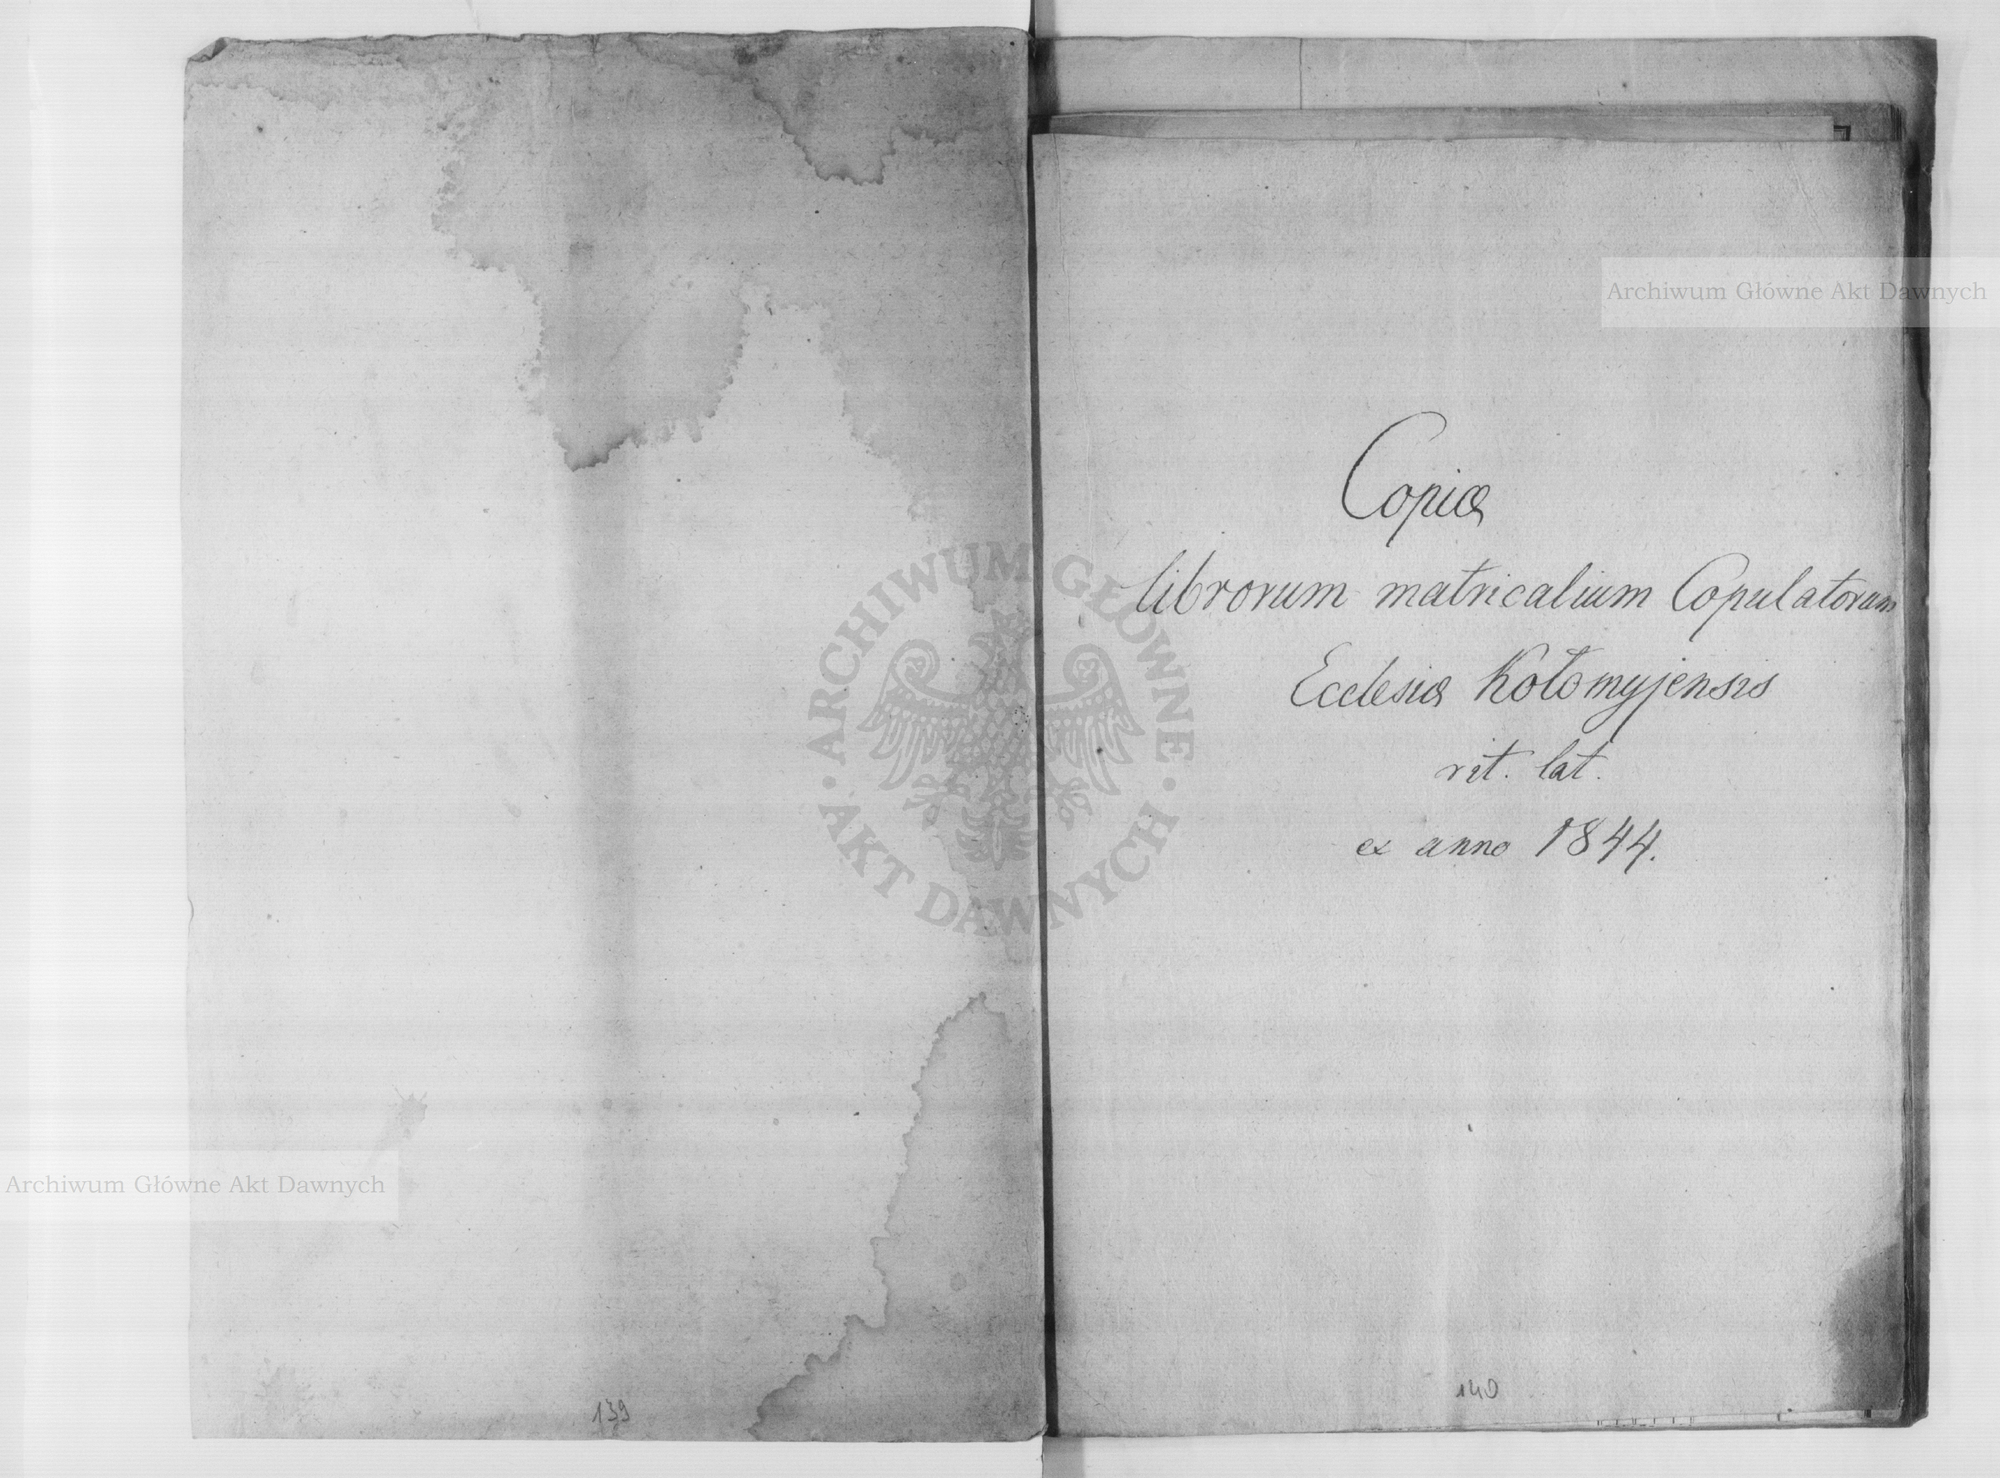 Copiæ
librorum matricalium Copulatorum
Ecclesiæ Kołomyjensis
rit. lat.
ex anno 1844.
139
140
Archiwum Główne Akt Dawnych
ARCHIWUM GŁÓWNE · AKT DAWNYCH ·
Archiwum Główne Akt Dawnych